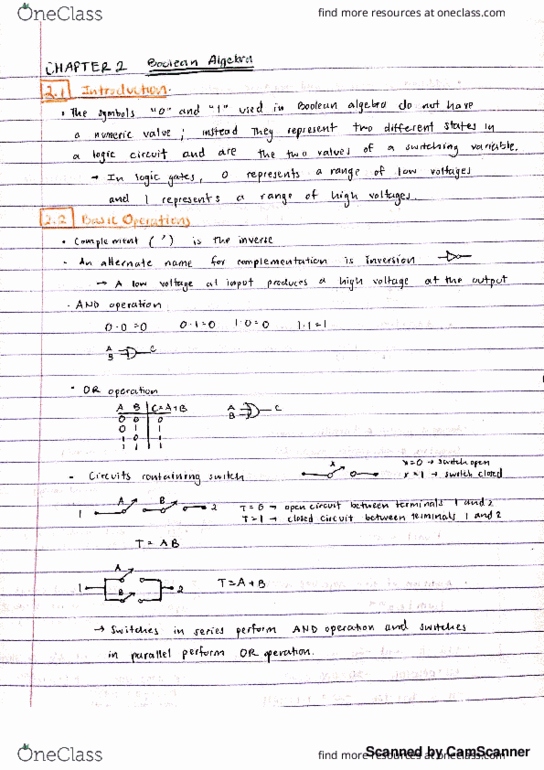 OneClass
find more resources at oneclass.com
CHAPTER 2 Boolean Algebra
2.1 Introduction.
• The symbols "0" and "1" used in Boolean algebra do not have
a numeric value; instead they represent two different states in
a logic circuit and are the two values of a switching variable.
→ In logic gates, 0 represents a range of low voltages
and 1 represents a range of high voltages.
2.2 Basic Operations
• Complement (') is the inverse
• An alternate name for complementation is inversion
→ A low voltage at input produces a high voltage at the output
• AND operation
0·0=0 0·1=0 1·0=0 1·1=1
A
B
C
• OR operation
A B C=A+B
0 0 0
0 1 1
1 0 1
1 1 1
A
B
C
• Circuits containing switch
x
x=0 → switch open
x=1 → switch closed
1 A B 2
T=0 → open circuit between terminals 1 and 2
T=1 → closed circuit between terminals 1 and 2
T = AB
A
1 B 2
T=A+B
→ Switches in series perform AND operation and switches
in parallel perform OR operation.
OneClass
find more resources at oneclass.com
Scanned by CamScanner